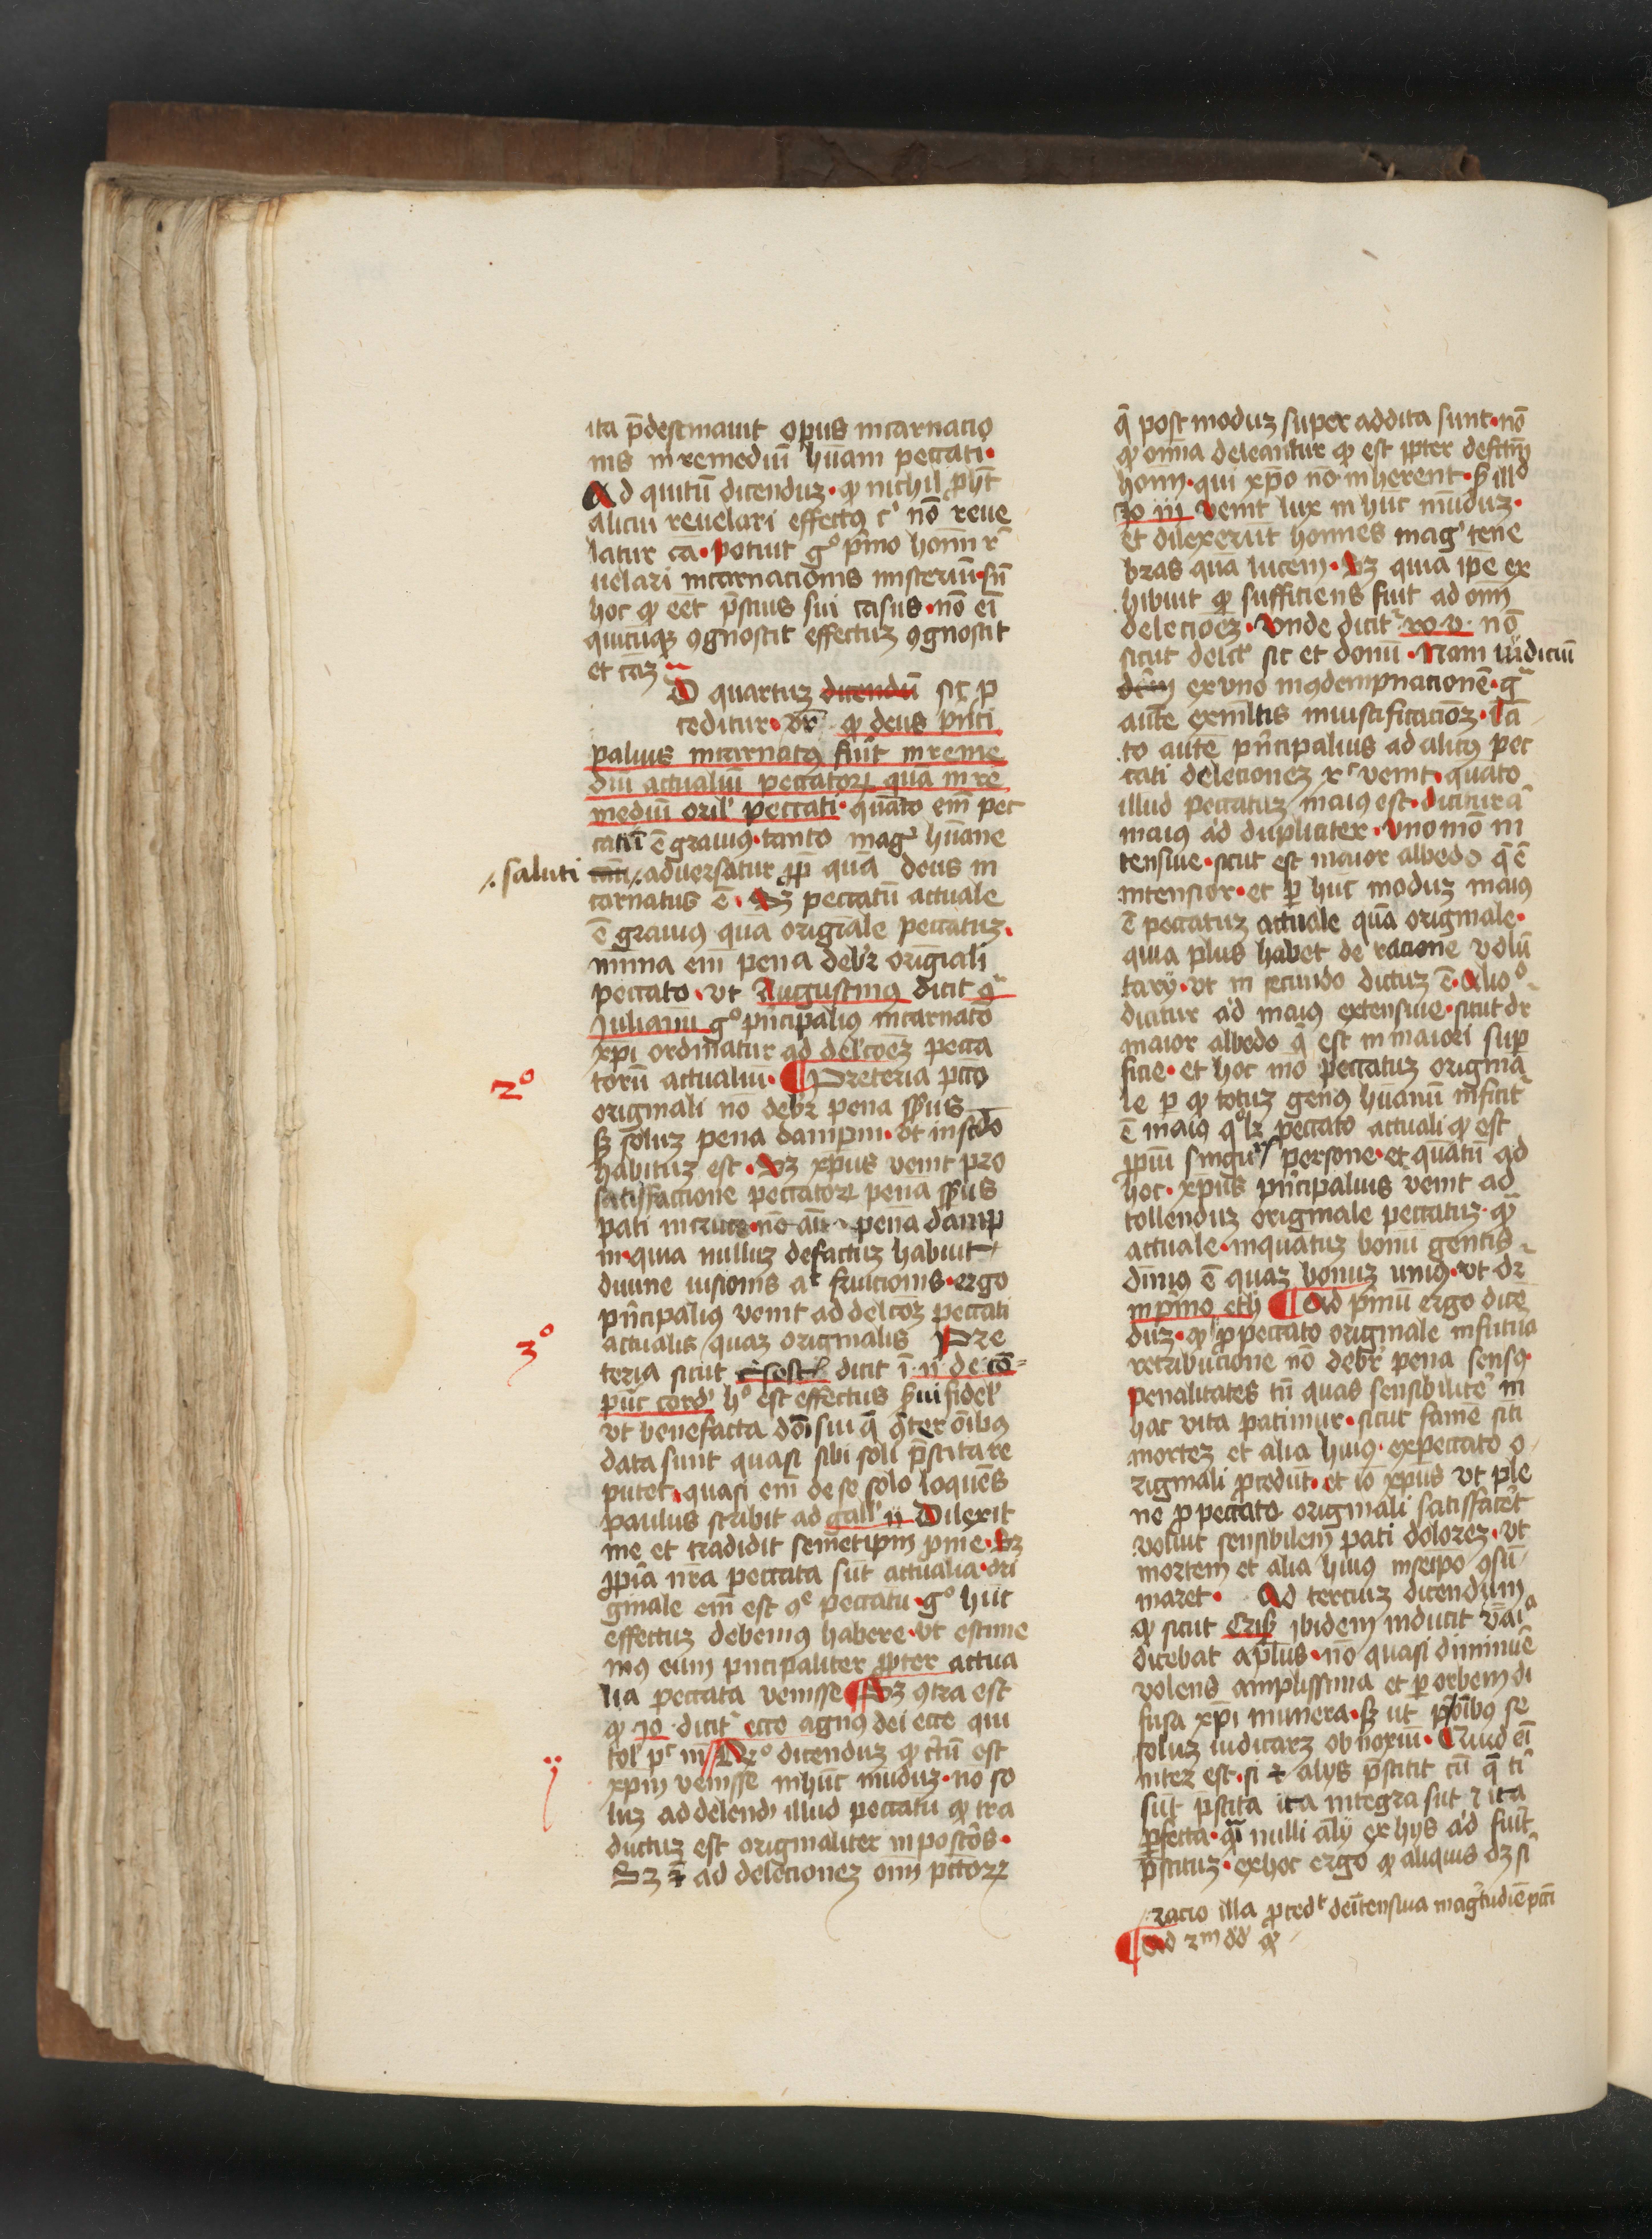 ita p̄destinauit opus incarnacio
nis in remediū hūani peccati·
Ad quītū dicenduz· ꝙ nichil ꝓhꝫt
alicui reuelari effectꝰ cꝰ nō reue
latur cā· potuit gͦ pͥmo homī r̄
uelari incarnacionis misteriū· sn̄
hoc ꝙ eēt p̄scius sui casus· nō ei
quicūqꝫ ꝯgnoscit effectuz ꝯgnoscit
et cāz
Ad quartuz dicendū sic ꝓ
ceditur· vr̄ ꝙ deus pͥnci
palius incarnatꝰ fuit in reme
diū actualiū peccatoꝝ quā in re
mediū oril' peccati· quāto em̄ pec
catū ē grauiꝰ· tanto magꝭ hūane
saluti
aduersatur ꝓp̄ quā deus in
carnatus ē· Sꝫ peccatū actuale
ē grauiꝰ quā originale peccatuz·
minīa em̄ pena debꝫ originali
peccato· vt Augustinꝰ dicit ꝯ̄
Julianū gͦ pͥncipaliꝰ incarnatō
xp̄i ordinatur ad del'cōez pecca
torū actualiū· ¶ Preterea pcc̄o
2º
originali nō debꝫ pena sēsus
sꝫ soluz pena dampni· vt in scd̄o
habituz est· Sꝫ xp̄us venit pro
satisfactione peccatoꝝ pena sēsus
pati in cruce· nō aūt pena damp
ni· quia nulluz defectuz habuit
diuine visionis at fruicionis· ergo
pͥncipaliꝰ venit ad delcōz peccati
actualis quaz originalis Pre
3º
terea sicut Crisost' dicit ī· ii de cō=
pūc cord' hͦ est effectus serui fidel'
vt benefacta dn̄i sui q̄ ꝯiter oībꝰ
data sunt quasi sibi soli p̄stita re
putet· quasi em̄ de se solo loquēs
paulus scribit ad gall' ii Dilexit
me et tradidit semetipm̄ ꝓ me· Sꝫ
ꝓpͥa nr̄a peccata sūt actualia· ori
ginale em̄ est ꝯͤ peccatū· gͦ hūc
effectuz debemꝰ habere· vt estime
mꝰ eum pͥncipaliter ꝓpter actua
lia peccata venisse ¶ Sꝫ ꝯtra est
ꝙ Jo· dicitʳ ecce agnꝰ dei ecce qui
tol' pc̄ m̄ Rͦ dicenduz ꝙ c̄tū est
ij
xpm̄ venisse in hūc mūduz· nō so
luz ad delend' illud peccatū ꝙ tra
ductuz est originaliter in posteros·
Sꝫ ꝫ̄ ad delecionez oīm pcc̄oꝝ
q̄ post moduz super addita sunt· nō
ꝙ omīa deleantur ꝙ est ꝓpter defctm̄
hoīm· qui xp̄o nō inherent· ẜm illd
Jo iii venit lux in hūc mūduz·
et dilexerūt homīes magꝭ tene
bras quā lucem· Sꝫ quia ip̄e ex
hibuit ꝙ sufficiens fuit ad oīm
delecioēz· Vnde dicitʳ ro v· nō
sicut delc̄t sic et donū· Nam iudiciū
ex vno in ꝯdempnacionē· gᷓ
autē ex ml̄tis in iustificacioēz· Tā
to autē pͥncipalius ad alicꝰ pec
cati delecionez xͬ venit· quāto
illud peccatuz maiꝰ est· dicitur aͥ
maiꝰ ad dupliciter· Vno mō in
tensiue· sicut est maior albedo q̄ ē
intensior· et per hūc moduz maiꝰ
ē peccatuz actuale quā originale·
quia plus habet de racione volū
tarij· vt in secundo dictuz ē· Alioͦ
dicitur ad maiꝰ extensiue· sicut dr̄
maior albedo q̄ est in maiori sup
ficie· et hoc mō peccatuz origina
le per ꝙ totuz genꝰ hūanū inficitʳ
ē maiꝰ qͦlꝫ peccato actuali ꝙ est
ꝓpͥū singul'r persone· et quātū ad
hoc· xp̄us pͥncipalius venit ad
tollenduz originale peccatuz· ꝙ
actuale· inquātuz bonū gentis
diuinꝰ ē quaz bonuz uniꝰ· vt dr̄
in pͥmo eth ¶ Ad pͥmū ergo dicē
duz· ꝙ ꝓ peccato originale in futura
retribucione nō debꝫ pena sensꝰ
penalitates tn̄ quas sensibilitē in
hac vita patimur· sicut famē siti
mortez et alia huiꝰ· ex peccato o
riginali ꝓcedūt· et iō xp̄us vt ple
ne ꝓ peccato originali satisfacēt
voluit sensibilem pati dolorez· vt
mortem et alia huiꝰ in seipo ꝯsū
maret· Ad terciuz dicendum
ꝙ sicut Criß ibidem inducit
dicebat apl̄us· nō quasi diminuē
volens amplissima et per orbem di
fusa xp̄i munera· sꝫ ut ꝓ oībꝰ se
soluz iudicarz obnoxiū· Quid eī
interest· si ꝫ alijs p̄stitit cū q̄ ti
sūt p̄stita ita integra sūt ꝫ ita
ꝑfecta· qͣi nulli alij ex hijs ad fuit
p̄stituz· ex hoc ergo ꝙ aliquis dꝫ si
racio illa ꝓcedt de intensiua magͥtudīe pcci
¶ Ad 2m dd ꝙ